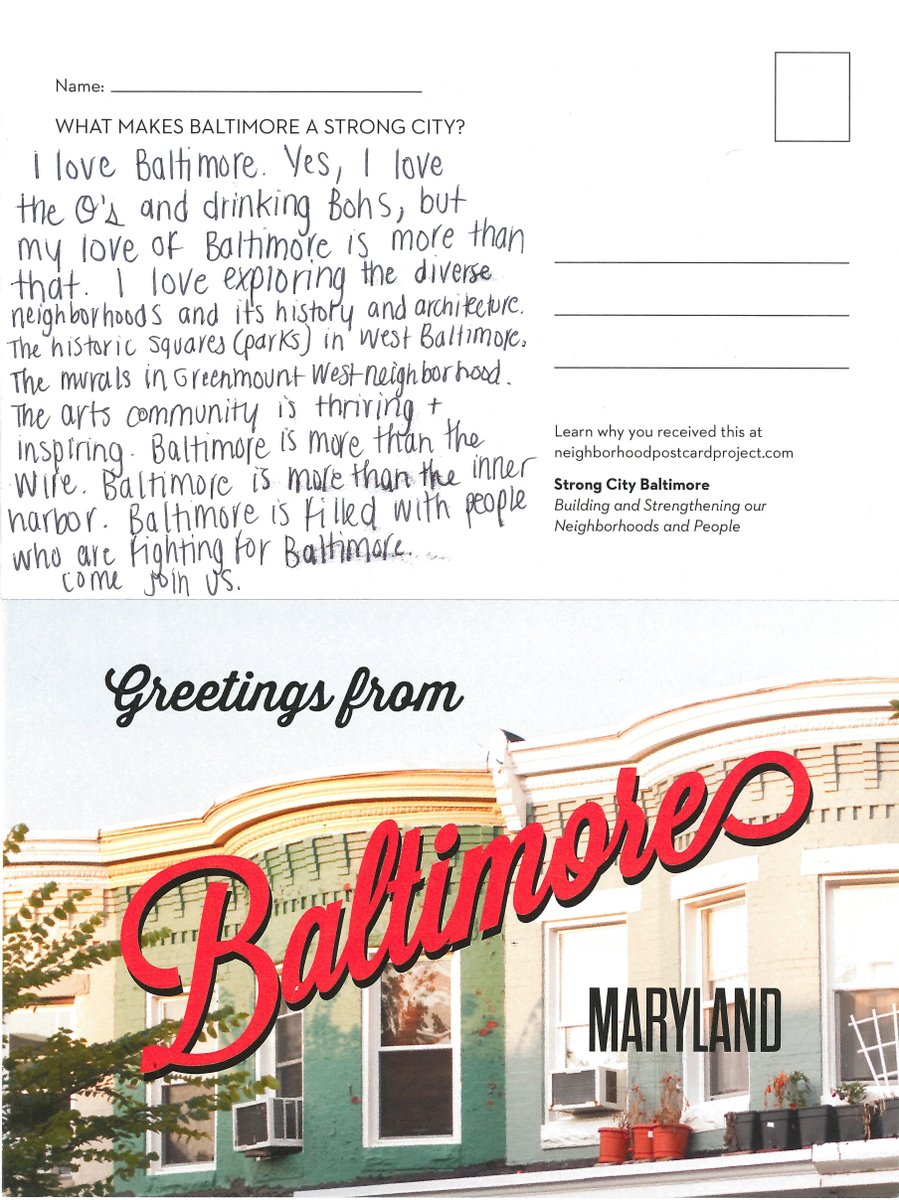 Name:
WHAT MAKES BALTIMORE A STRONG CITY?
I love Baltimore. Yes, I love
the O's and drinking Bohs, but
my love of Baltimore is more than
that. I love exploring the diverse
neighborhoods and its history and architecture.
The historic squares (parks) in West Baltimore.
The murals in Greenmount West neighborhood.
The arts community is thriving +
inspiring. Baltimore is more than the
Wire. Baltimore is more than the inner
harbor. Baltimore is filled with people
who are fighting for Baltimore.
come join us.
Learn why you received this at
neighborhoodpostcardproject.com
Strong City Baltimore
Building and Strengthening our
Neighborhoods and People
Greetings from
Baltimore
MARYLAND